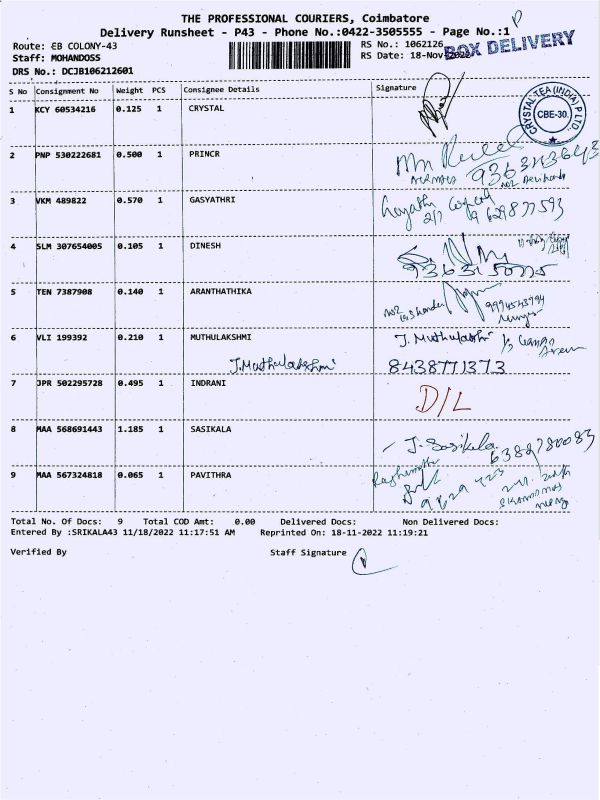 THE PROFESSIONAL COURIERS, Coimbatore
Delivery Runsheet - P43 - Phone No.:0422-3505555 - Page No.:1
Route: EB COLONY-43
RS No.: 1062126
BOX DELIVERY
Staff: MOHANDOSS
RS Date: 18-Nov-2022
DRS No.: DCJB106212601
S No Consignment No Weight PCS Consignee Details Signature
1 KCY 60534216 0.125 1 CRYSTAL
CRYSTAL TEA (INDIA) P LTD. CBE-30.
2 PNP 530222681 0.500 1 PRINCR
3 VKM 489822 0.570 1 GASYATHRI
Gayathri
9629877593
4 SLM 307654005 0.105 1 DINESH
5 TEN 7387908 0.140 1 ARANTHATHIKA
9994543794
6 VLI 199392 0.210 1 MUTHULAKSHMI J. Muthulakshmi
J. Muthulakshmi 8438771373
7 JPR 502295728 0.495 1 INDRANI D/L
8 MAA 568691443 1.185 1 SASIKALA
J. Sasikala 6382780083
9 MAA 567324818 0.065 1 PAVITHRA
Total No. Of Docs: 9 Total COD Amt: 0.00 Delivered Docs: Non Delivered Docs:
Entered By :SRIKALA43 11/18/2022 11:17:51 AM Reprinted On: 18-11-2022 11:19:21
Verified By Staff Signature